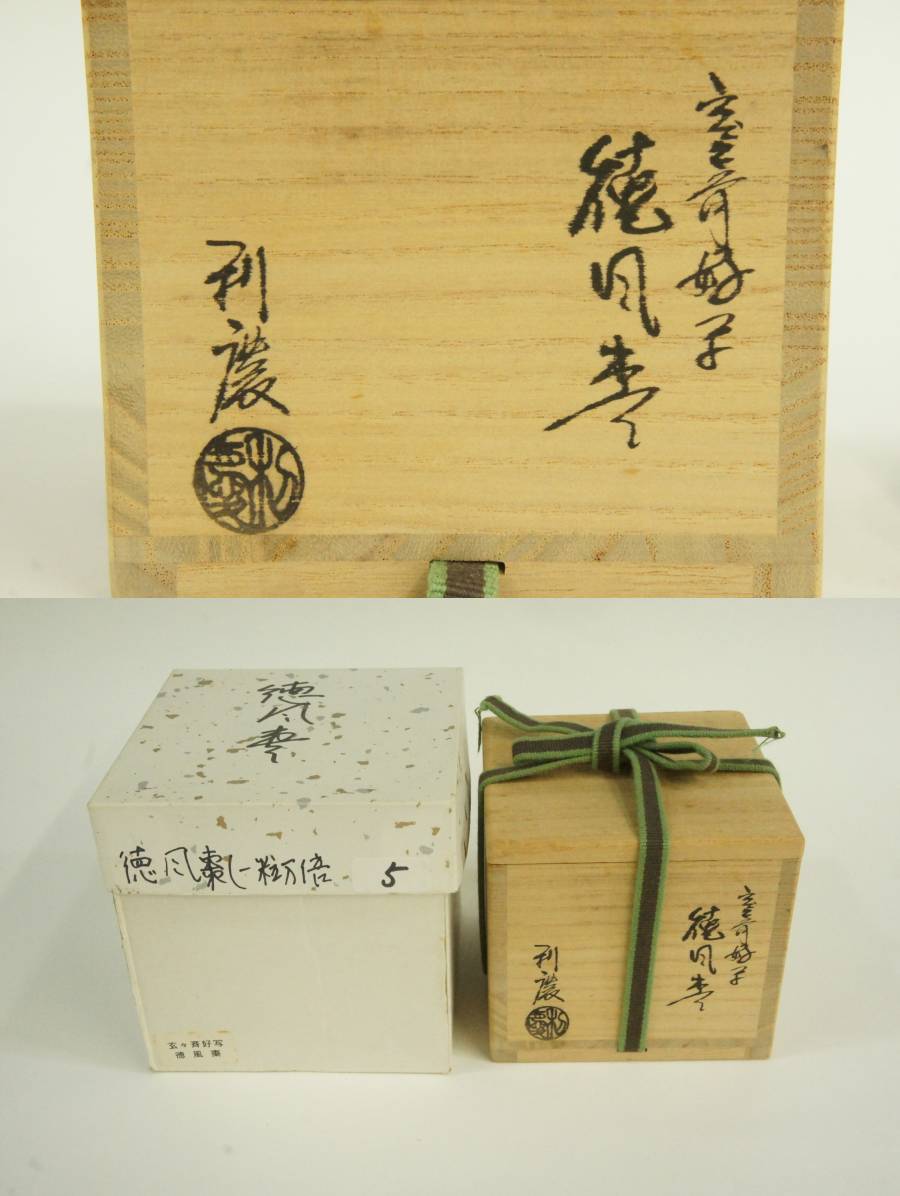 玄々斎好写
徳風棗
利慶
徳風棗
徳風棗し一粒万倍
5
玄々斉好写
徳風棗
玄々斎好写
徳風棗
利慶